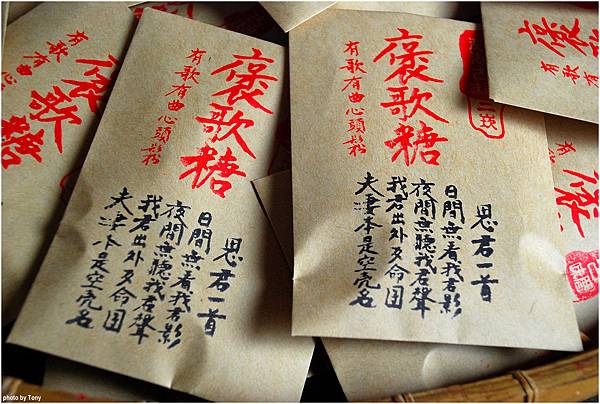 褒歌糖
有歌有曲心頭鬆
思君一首
日間無看我君影
夜間無聽我君聲
我君出外歹命
夫凄本是空壳名
褒歌糖
有歌有曲心頭鬆
思君一首
日間無看我君影
夜間無聽我君聲
我君出外歹命
夫凄本是空壳名
褒歌糖
有歌有曲心頭
褒歌
有歌有
三崁
褒
有歌
photo by Tony